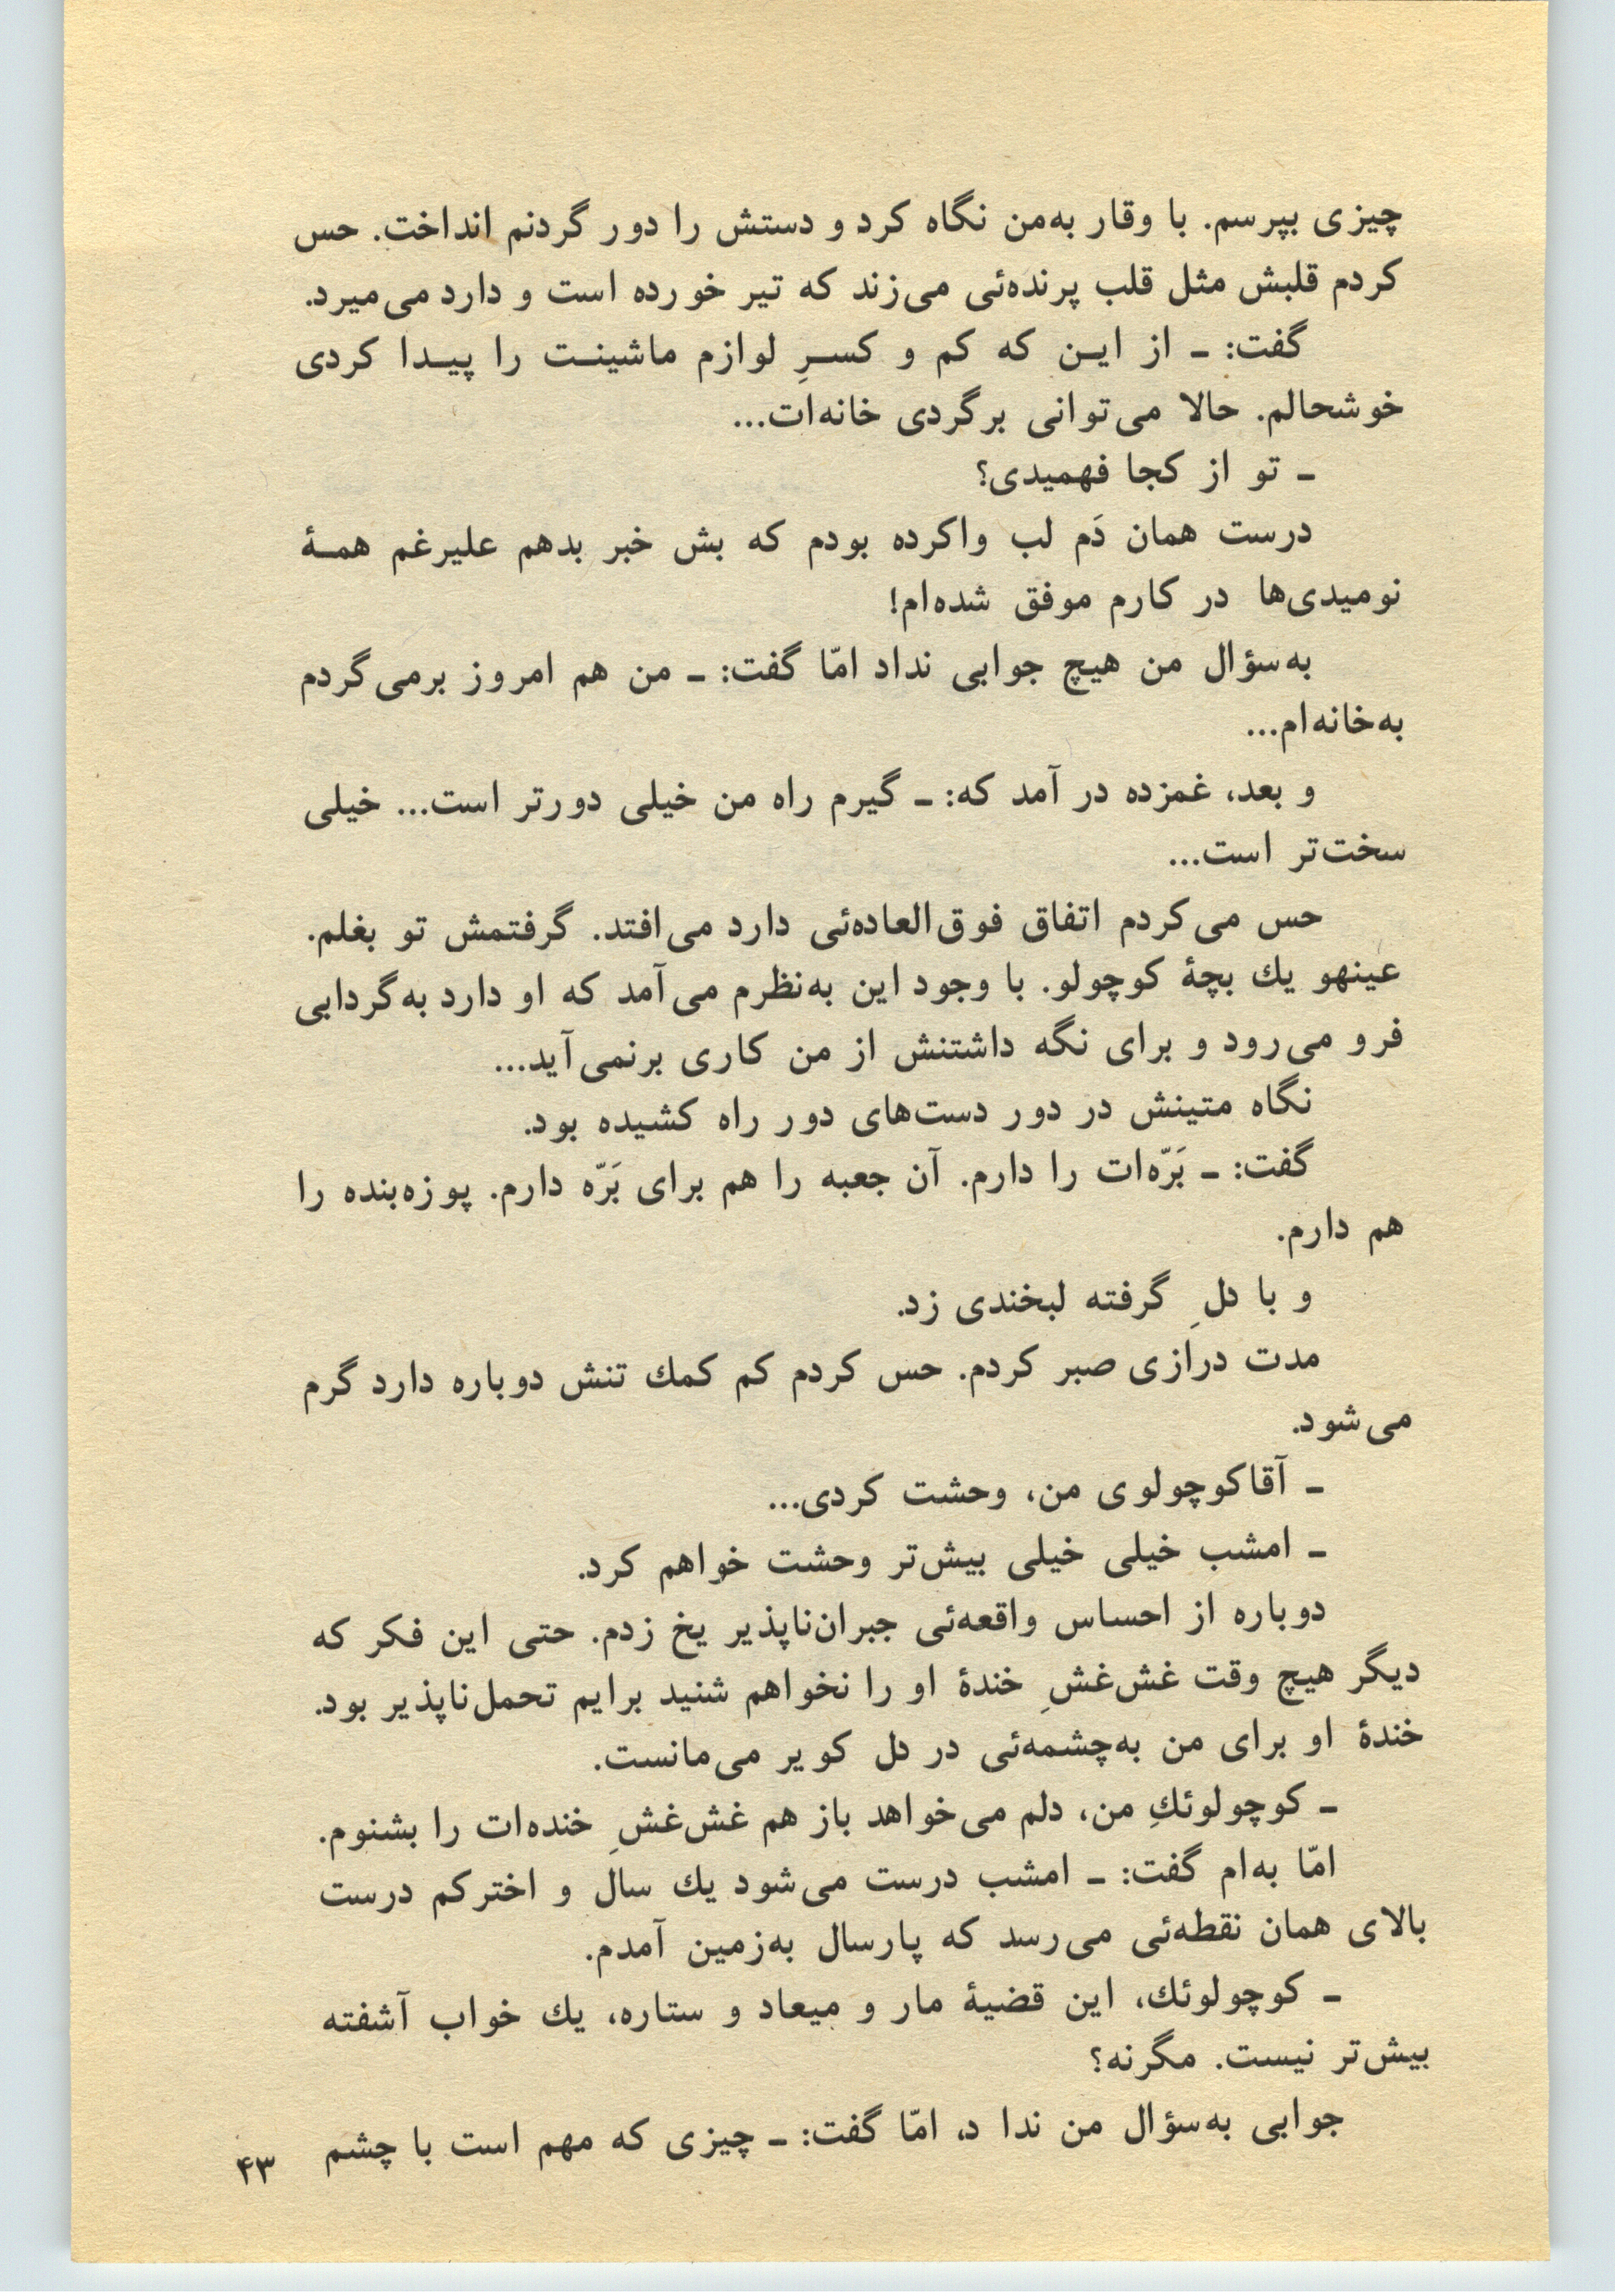 چیزی بپرسم. با وقار به‌من نگاه کرد و دستش را دور گردنم انداخت. حس
کردم قلبش مثل قلب پرنده‌ئی می‌زند که تیر خورده است و دارد می‌میرد.
گفت: ـ از ایـن که کم و کسـرِ لوازم ماشینـت را پیـدا کردی
خوشحالم. حالا می‌توانی برگردی خانه‌ات...
ـ تو از کجا فهمیدی؟
درست همان دَم لب واکرده بودم که بش خبر بدهم علیرغم همـهٔ
نومیدی‌ها در کارم موفق شده‌ام!
به‌سؤال من هیچ جوابی نداد امّا گفت: ـ من هم امروز برمی‌گردم
به‌خانه‌ام...
و بعد، غمزده در آمد که: ـ گیرم راه من خیلی دورتر است... خیلی
سخت‌تر است...
حس می‌کردم اتفاق فوق‌العاده‌ئی دارد می‌افتد. گرفتمش تو بغلم.
عینهو یك بچهٔ کوچولو. با وجود این به‌نظرم می‌آمد که او دارد به‌گردابی
فرو می‌رود و برای نگه داشتنش از من کاری برنمی‌آید...
نگاه متینش در دور دست‌های دور راه کشیده بود.
گفت: ـ بَرّه‌ات را دارم. آن جعبه را هم برای بَرّه دارم. پوزه‌بنده را
هم دارم.
و با دلِ گرفته لبخندی زد.
مدت درازی صبر کردم. حس کردم کم کمك تنش دوباره دارد گرم
می‌شود.
ـ آقاکوچولوی من، وحشت کردی...
ـ امشب خیلی خیلی بیش‌تر وحشت خواهم کرد.
دوباره از احساس واقعه‌ئی جبران‌ناپذیر یخ زدم. حتی این فکر که
دیگر هیچ وقت غش‌غشِ خندهٔ او را نخواهم شنید برایم تحمل‌ناپذیر بود.
خندهٔ او برای من به‌چشمه‌ئی در دل کویر می‌مانست.
ـ کوچولوئكِ من، دلم می‌خواهد باز هم غش‌غشِ خنده‌ات را بشنوم.
امّا به‌ام گفت: ـ امشب درست می‌شود یك سال و اخترکم درست
بالای همان نقطه‌ئی می‌رسد که پارسال به‌زمین آمدم.
ـ کوچولوئك، این قضیهٔ مار و میعاد و ستاره، یك خواب آشفته
بیش‌تر نیست. مگرنه؟
جوابی به‌سؤال من ندا د، امّا گفت: ـ چیزی که مهم است با چشم
۴۳